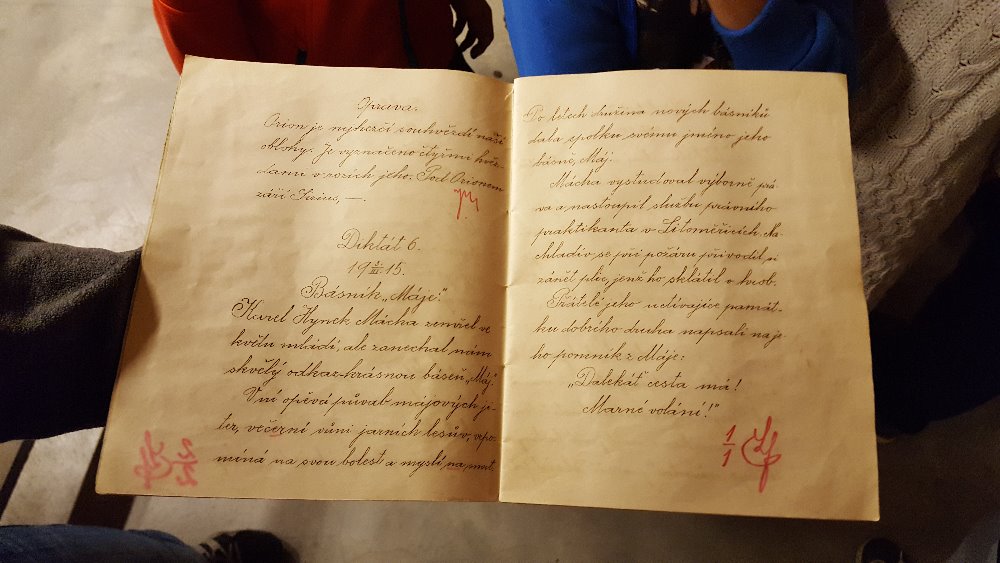 Oprava:
Orion je nejhezčí souhvězdí naší
oblohy. Je vyznačeno čtyřmi hvěz-
dami v rozích jeho. Pod Orionem
září Sirius, —.
Diktát 6.
19 5/III 15.
Básník „Máje".
Karel Hynek Mácha zemřel ve
květu mládí, ale zanechal nám
skvělý odkaz-krásnou báseň „Máj".
V ní opěvá půvab májových ji-
ter, večerní vůni jarních lesův, vzpo-
míná na svou bolest a myslí na smrt.
Po letech družina nových básníků
dala spolku svému jméno jeho
básně, Máj.
Mácha vystudoval výborně prá-
va a nastoupil službu právního
praktikanta v Litoměřicích. Na-
chladiv se při požáru přivodil si
zánět plic, jenž ho sklátil v hrob.
Přátelé jeho uctívajíce památ-
ku dobrého druha napsali na je-
ho pomník z Máje:
„Daleká cesta má!
Marné volání!"
1/1